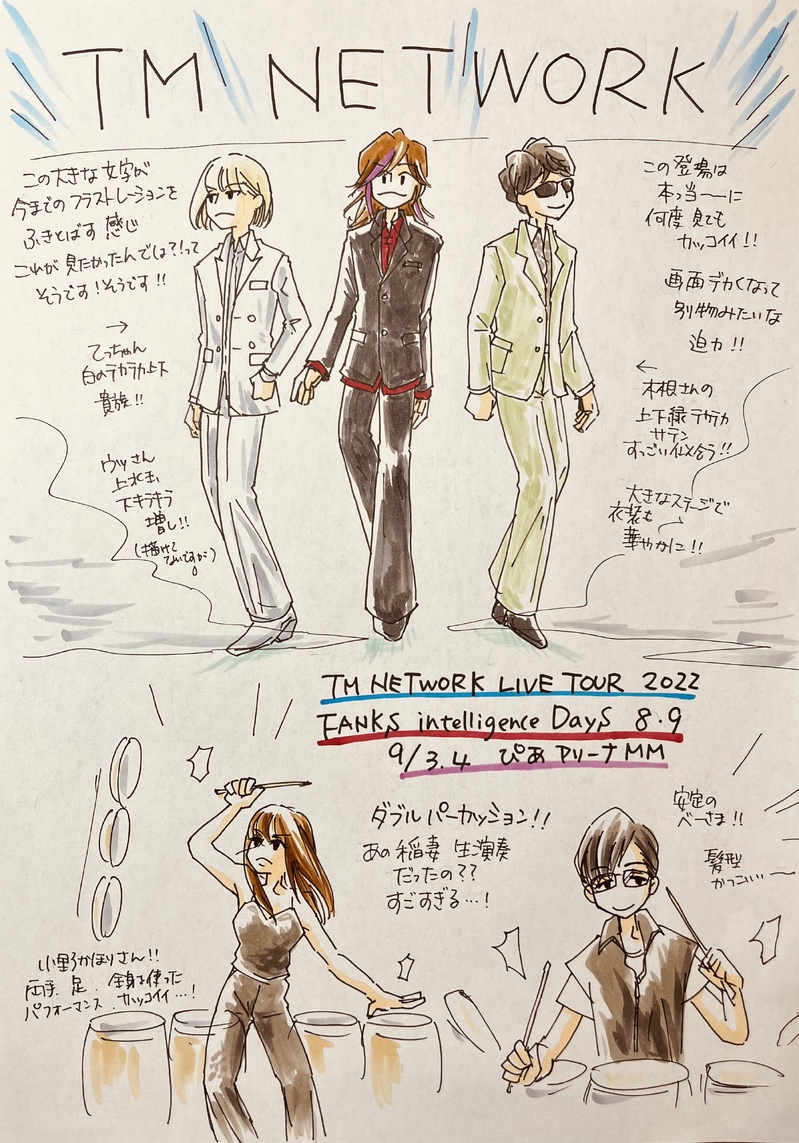 TM NETWORK
この大きな文字が
今までのフラストレーションを
ふきとばす感じ
これが見たかったんでは?!って
そうです!そうです!!
→
てっちゃん
白のテカテカ上下
貴族!!
ウツさん
上水玉
下キラキラ
増し!!
(描けて
ないですが)
この登場は
本当ーーに
何度見ても
カッコイイ!!
画面デカくなって
別物みたいな
迫力!!
←
木根さんの
上下緑テカテカ
サテン
すっごい似合う!!
大きなステージで
衣装も
華やかに!!
TM NETWORK LIVE TOUR 2022
FANKS intelligence Days 8・9
9/3.4 ぴあアリーナMM
ダブルパーカッション!!
あの稲妻 生演奏
だったの??
すごすぎる…!
小野かほりさん!!
両手、足、全身を使った
パフォーマンス、カッコイイ…!
安定の
べーさま!!
髪型
かっこいいー